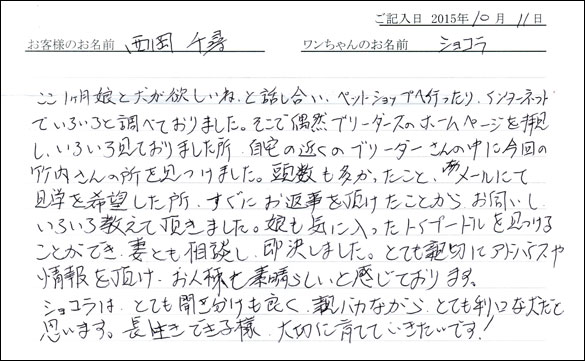 ご記入日 2015年10月11日
お客様のお名前 西岡 千尋 ワンちゃんのお名前 ショコラ
ここ1ヶ月娘と犬が欲しいね、と話し合い、ペットショップへ行ったり、インターネット
でいろいろと調べておりました。そこで偶然ブリーダーズのホームページを拝見
し、いろいろ見ておりました所、自宅の近くのブリーダーさんの中に今回の
竹内さんの所を見つけました。頭数も多かったこと、メールにて
見学を希望した所、すぐにお返事を頂けたことから、お伺いし
いろいろ教えて頂きました。娘も気に入ったトイプードルを見つける
ことができ、妻とも相談し、即決しました。とても親切にアドバイスや
情報を頂け、お人柄も素晴らしいと感じております。
ショコラは、とても聞き分けも良く、親バカながら、とても利口な犬だと
思います。長生きできる様、大切に育てていきたいです!